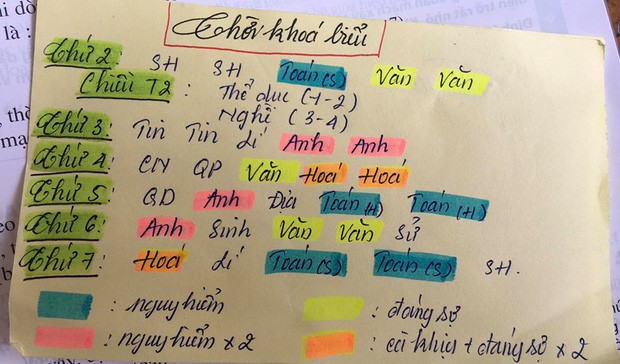 Thời khoá biểu
Thứ 2: SH SH Toán(s) Văn Văn
Chiều T2: Thể dục (1-2)
Nghề (3-4)
Thứ 3: Tin Tin Lí Anh Anh
Thứ 4: CN QP Văn Hoá Hoá
Thứ 5: GD Anh Địa Toán(H) Toán(H)
Thứ 6: Anh Sinh Văn Văn Sử
Thứ 7: Hoá Lí Toán(s) Toán(s) SH.
: nguy hiểm : đáng sợ
: nguy hiểm x 2 : + đáng sợ x 2